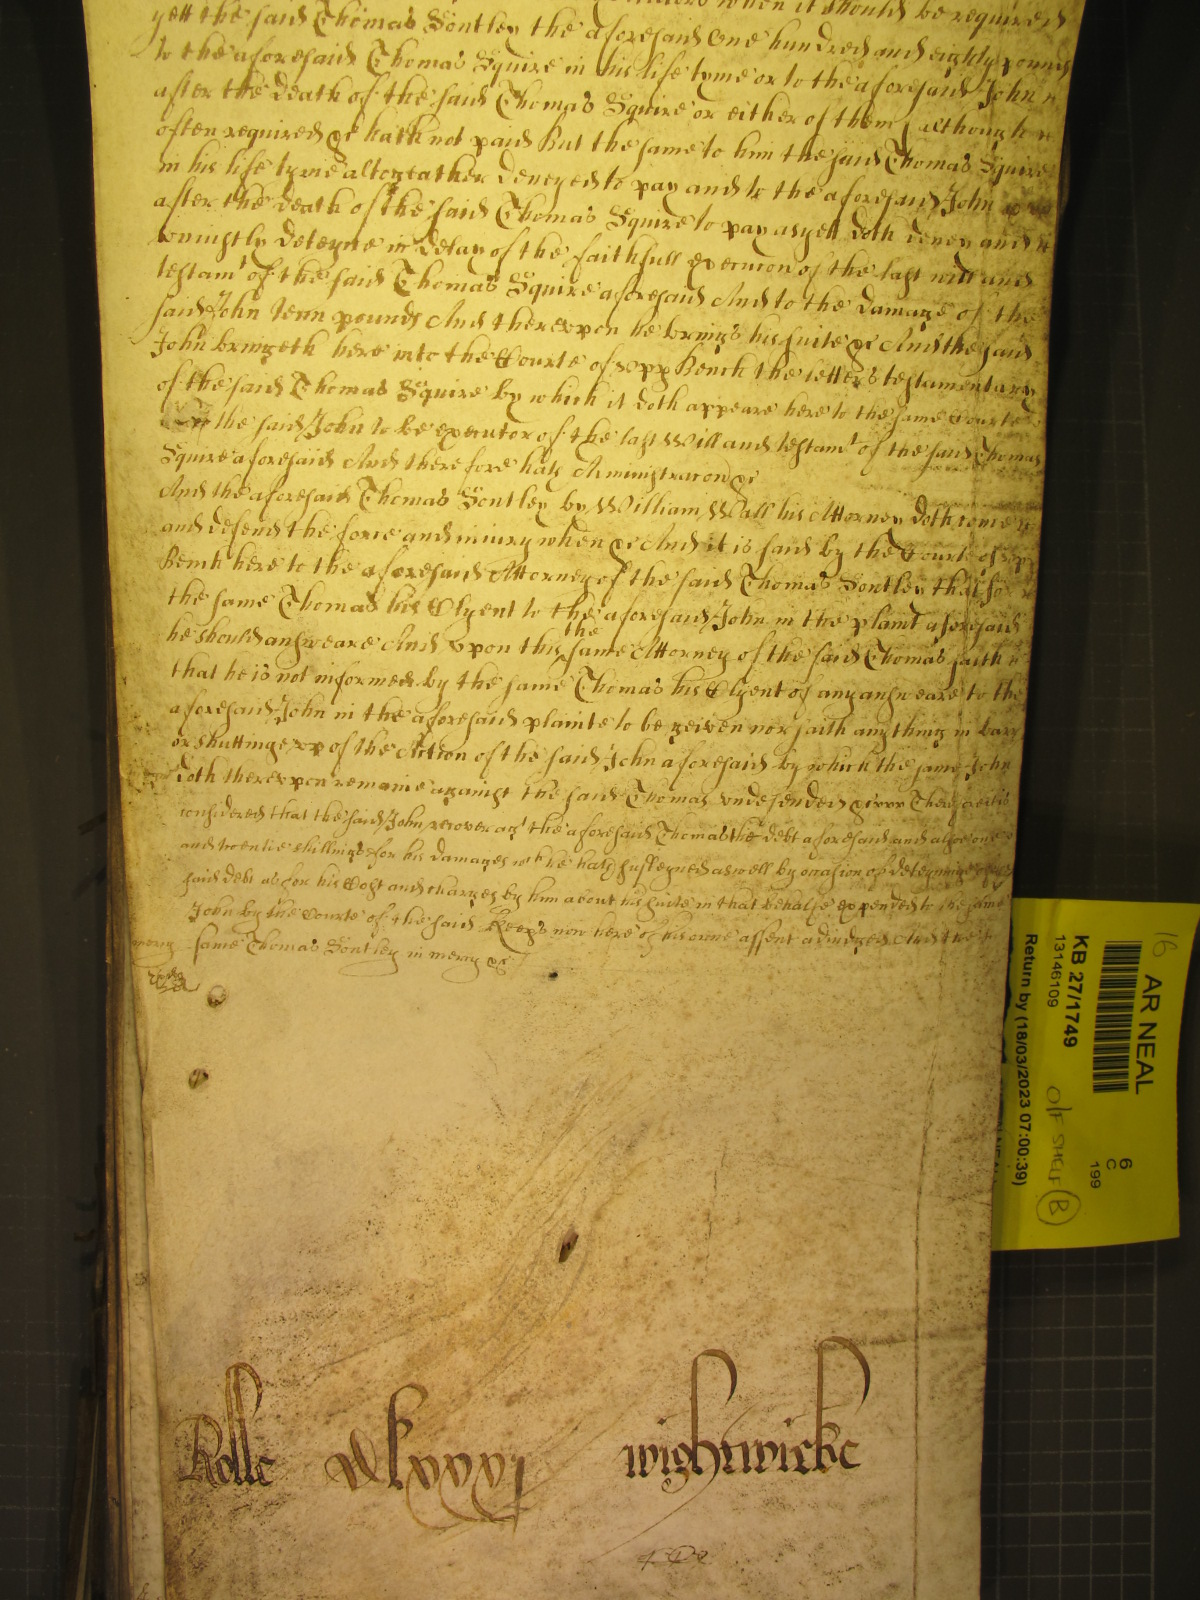 when it should be required
yett the said Thomas Sontley the aforesaid one hundred and eighty pounds
to the aforesaid Thomas Squire in his life tyme or to the aforesaid John
after the death of the said Thomas Squire or either of them (although
often required &c hath not paid But the same to him the said Thomas Squire
in his life tyme altogeather denyed to pay and to the aforesaid John
after the death of the said Thomas Squire to pay as yett doth deney and
wronigtly deteyne in delay of the faithfull execucion of the last will and
testamt of the said Thomas Squire aforesaid And to the damage of the
said John tenn pounds And thereupon he brings his suite &c And the said
John bringeth here into the Courte of Upp Bench the letters testamentary
of the said Thomas Squire by which it doth appeare here to the same Courte
the said John to be executor of the last Will and testamt of the said Thomas
Squire aforesaid And therefore hath Administracon &c
And the aforesaid Thomas Sontley by William Wall his Attorney doth come
and defend the force and iniury when &c And it is said by the Courte of Upp
Bench here to the aforesaid Attorney of the said Thomas Sontley that
the same Thomas his Clyent to the aforesaid John in the plaint aforesaid
he should answeare And upon this the same Attorney of the said Thomas saith
that he is not informed by the same Thomas his Clyent of any answeare to the
aforesaid John in the aforesaid plainte to be geiven nor saith any thing in barr
or shuttinge up of the Action of the said John aforesaid by which the same John
doth thereupon remaine against the said Thomas undefended &c Therefore it is
considered that the said John recover agt the aforesaid Thomas the debt aforesaid and alsoe one
and twentie shillings for his damages wch he hath susteyned aswell by occasion of deteyninge
said debt as for his Cost and charges by him about his suite in that behalfe expended to the same
John by the Courte of the said Keeps now here of his owne assent adiudged And the
mercy same Thomas Sontley in mercy &c
Rolle Dlxxxj Wightwicke
16
AR NEAL
KB 27/1749
13146109
Return by (18/03/2023 07:00:39)
O/F SHELF B
6
C
199